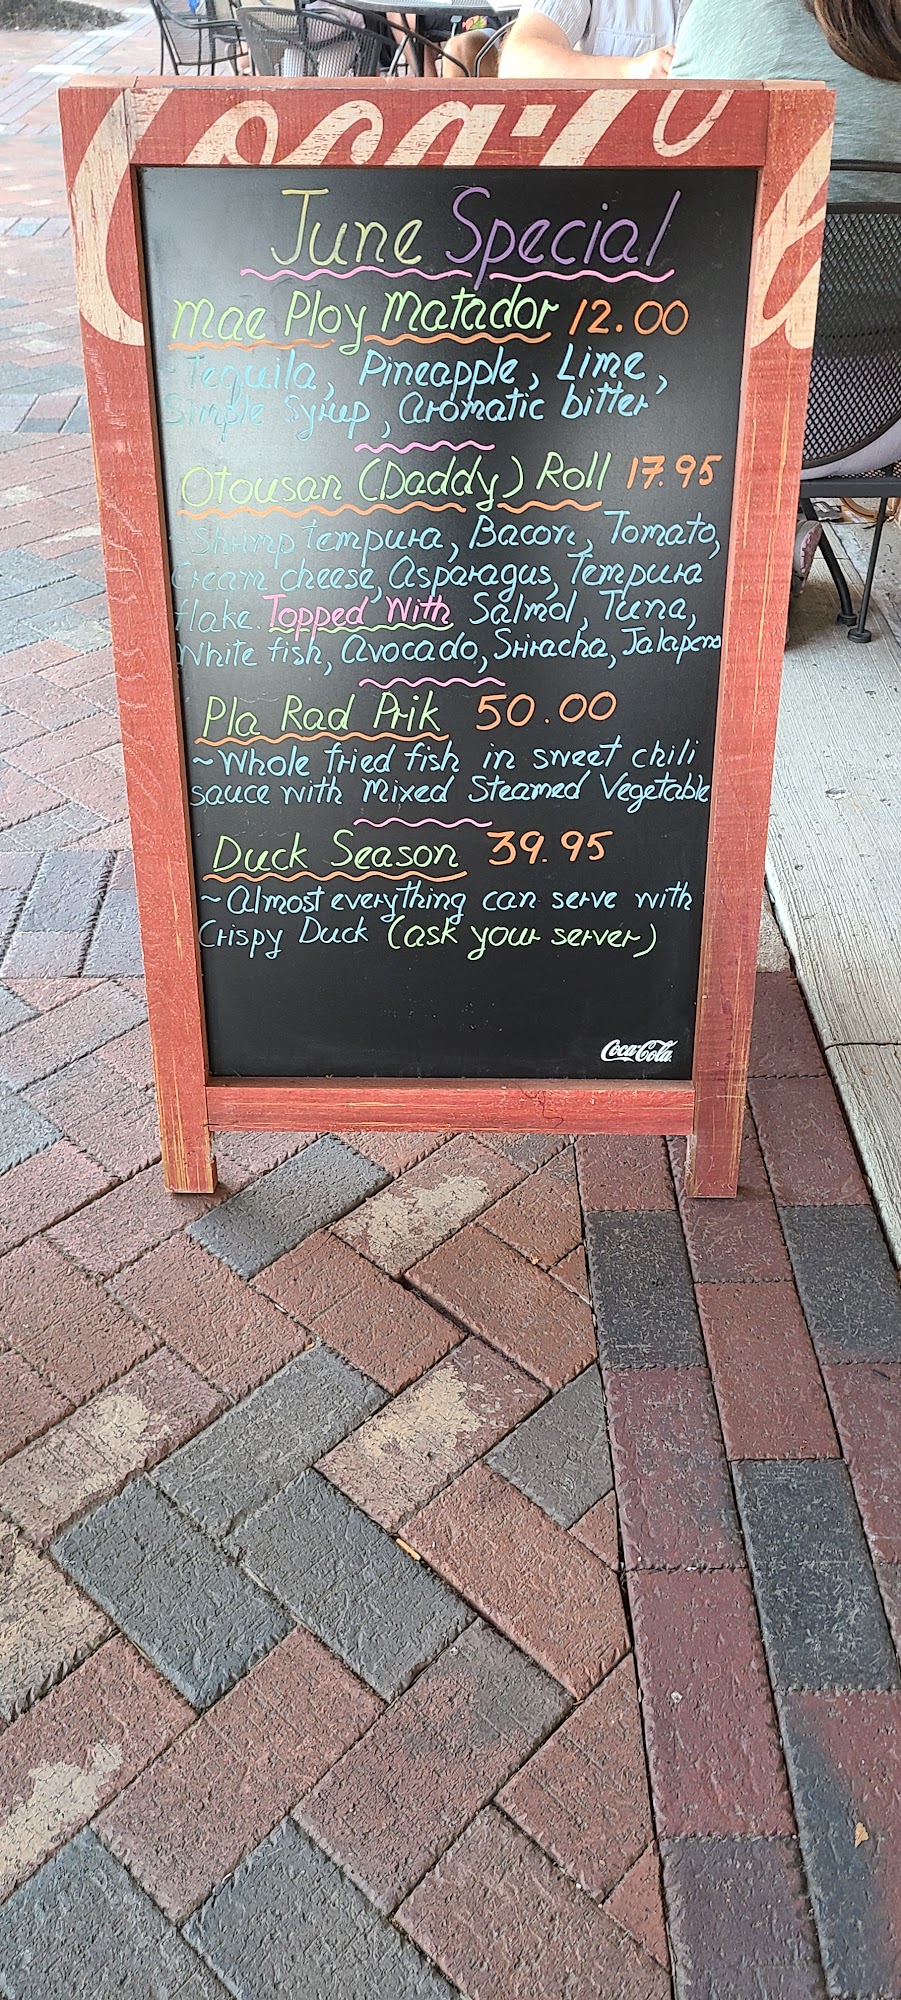 Coca-Cola
June Special
Mae Ploy Matador 12.00
~Tequila, Pineapple, Lime,
Simple Syrup, aromatic bitter
Otousan (Daddy) Roll 17.95
~Shrimp tempura, Bacon, Tomato,
Cream cheese, Asparagus, Tempura
flake. Topped With Salmol, Tuna,
White fish, Avocado, Sriracha, Jalapeno
Pla Rad Prik 50.00
~Whole fried fish in sweet chili
sauce with Mixed Steamed Vegetable
Duck Season 39.95
~Almost everything can serve with
Crispy Duck (ask your server)
Coca-Cola